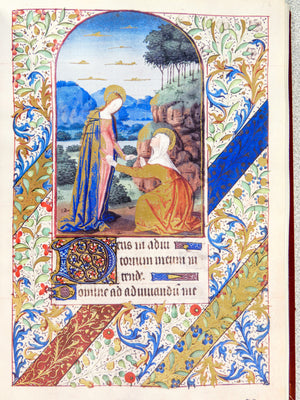 Deus in adiu
torium meum in
tende.
Domine ad adiuuandum me